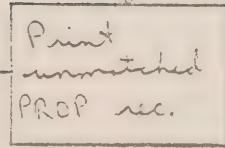 Print
unmatched
PROP rec.